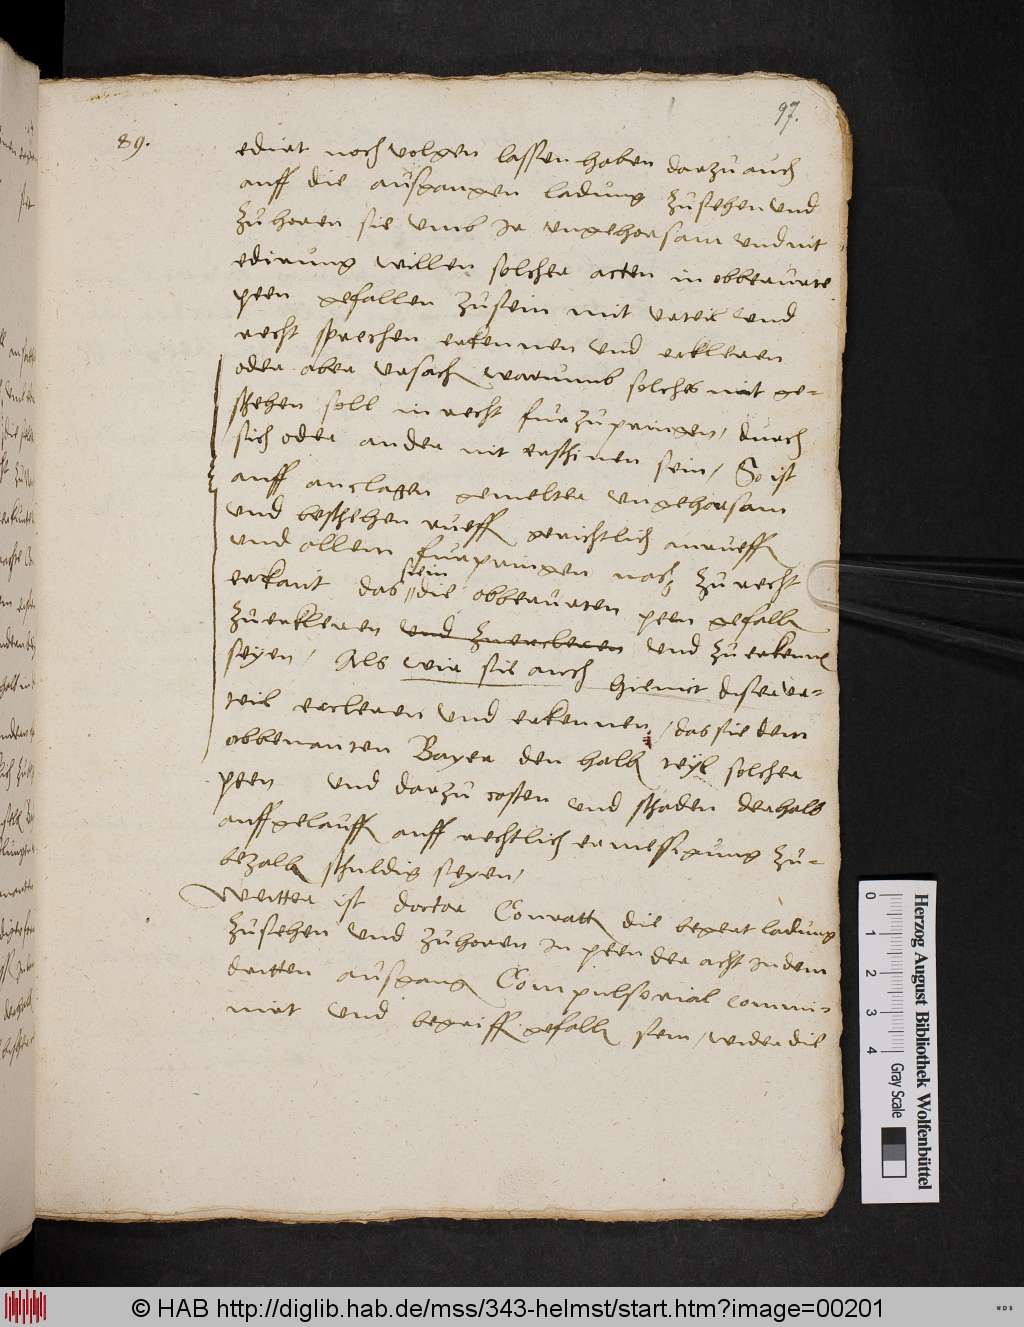 97.
89.
edirt noch volgen lassen haben darzu auch
auff die außgangen ladung zusehen und
zuhoren sie umb Ir ungehorsam und nit
edirung willen solcher acten in obberurte
peen gefallen zusein mit urteil und
recht sprechen erkennen und erkleren
oder aber ursach warumb solches nit ge-
schehen soll in recht furzupringen, durch
sich oder ander nit erschinen sein, So ist
auff anclagen gemelter ungehorsam
und beschehen rueff gerichtlich anrueff
und allem furpringen nach zu recht
erkant das sie in die obberurten peen gefalln
zuerkleren und zuercleren und zu erkennen
seyen, Als wir sie auch hiemit diser ur-
teil ercleren und erkennen, das sie dem
obbenanten Bayer den halb teyl solcher
peen und darzu costen und schaden derhalb
auffgelauff auff rechtlich ermessigung zu-
bezaln schuldig seyen,
Weitter ist doctor Conratt die begert ladung
zusehen und zuhoren In peen der acht In dem
dritten außgang Compulsorial commi-
nirt und begriff gefalln sein, wider die
Herzog August Bibliothek Wolfenbüttel
0 1 2 3 4
Gray Scale
© HAB http://diglib.hab.de/mss/343-helmst/start.htm?image=00201
WDB